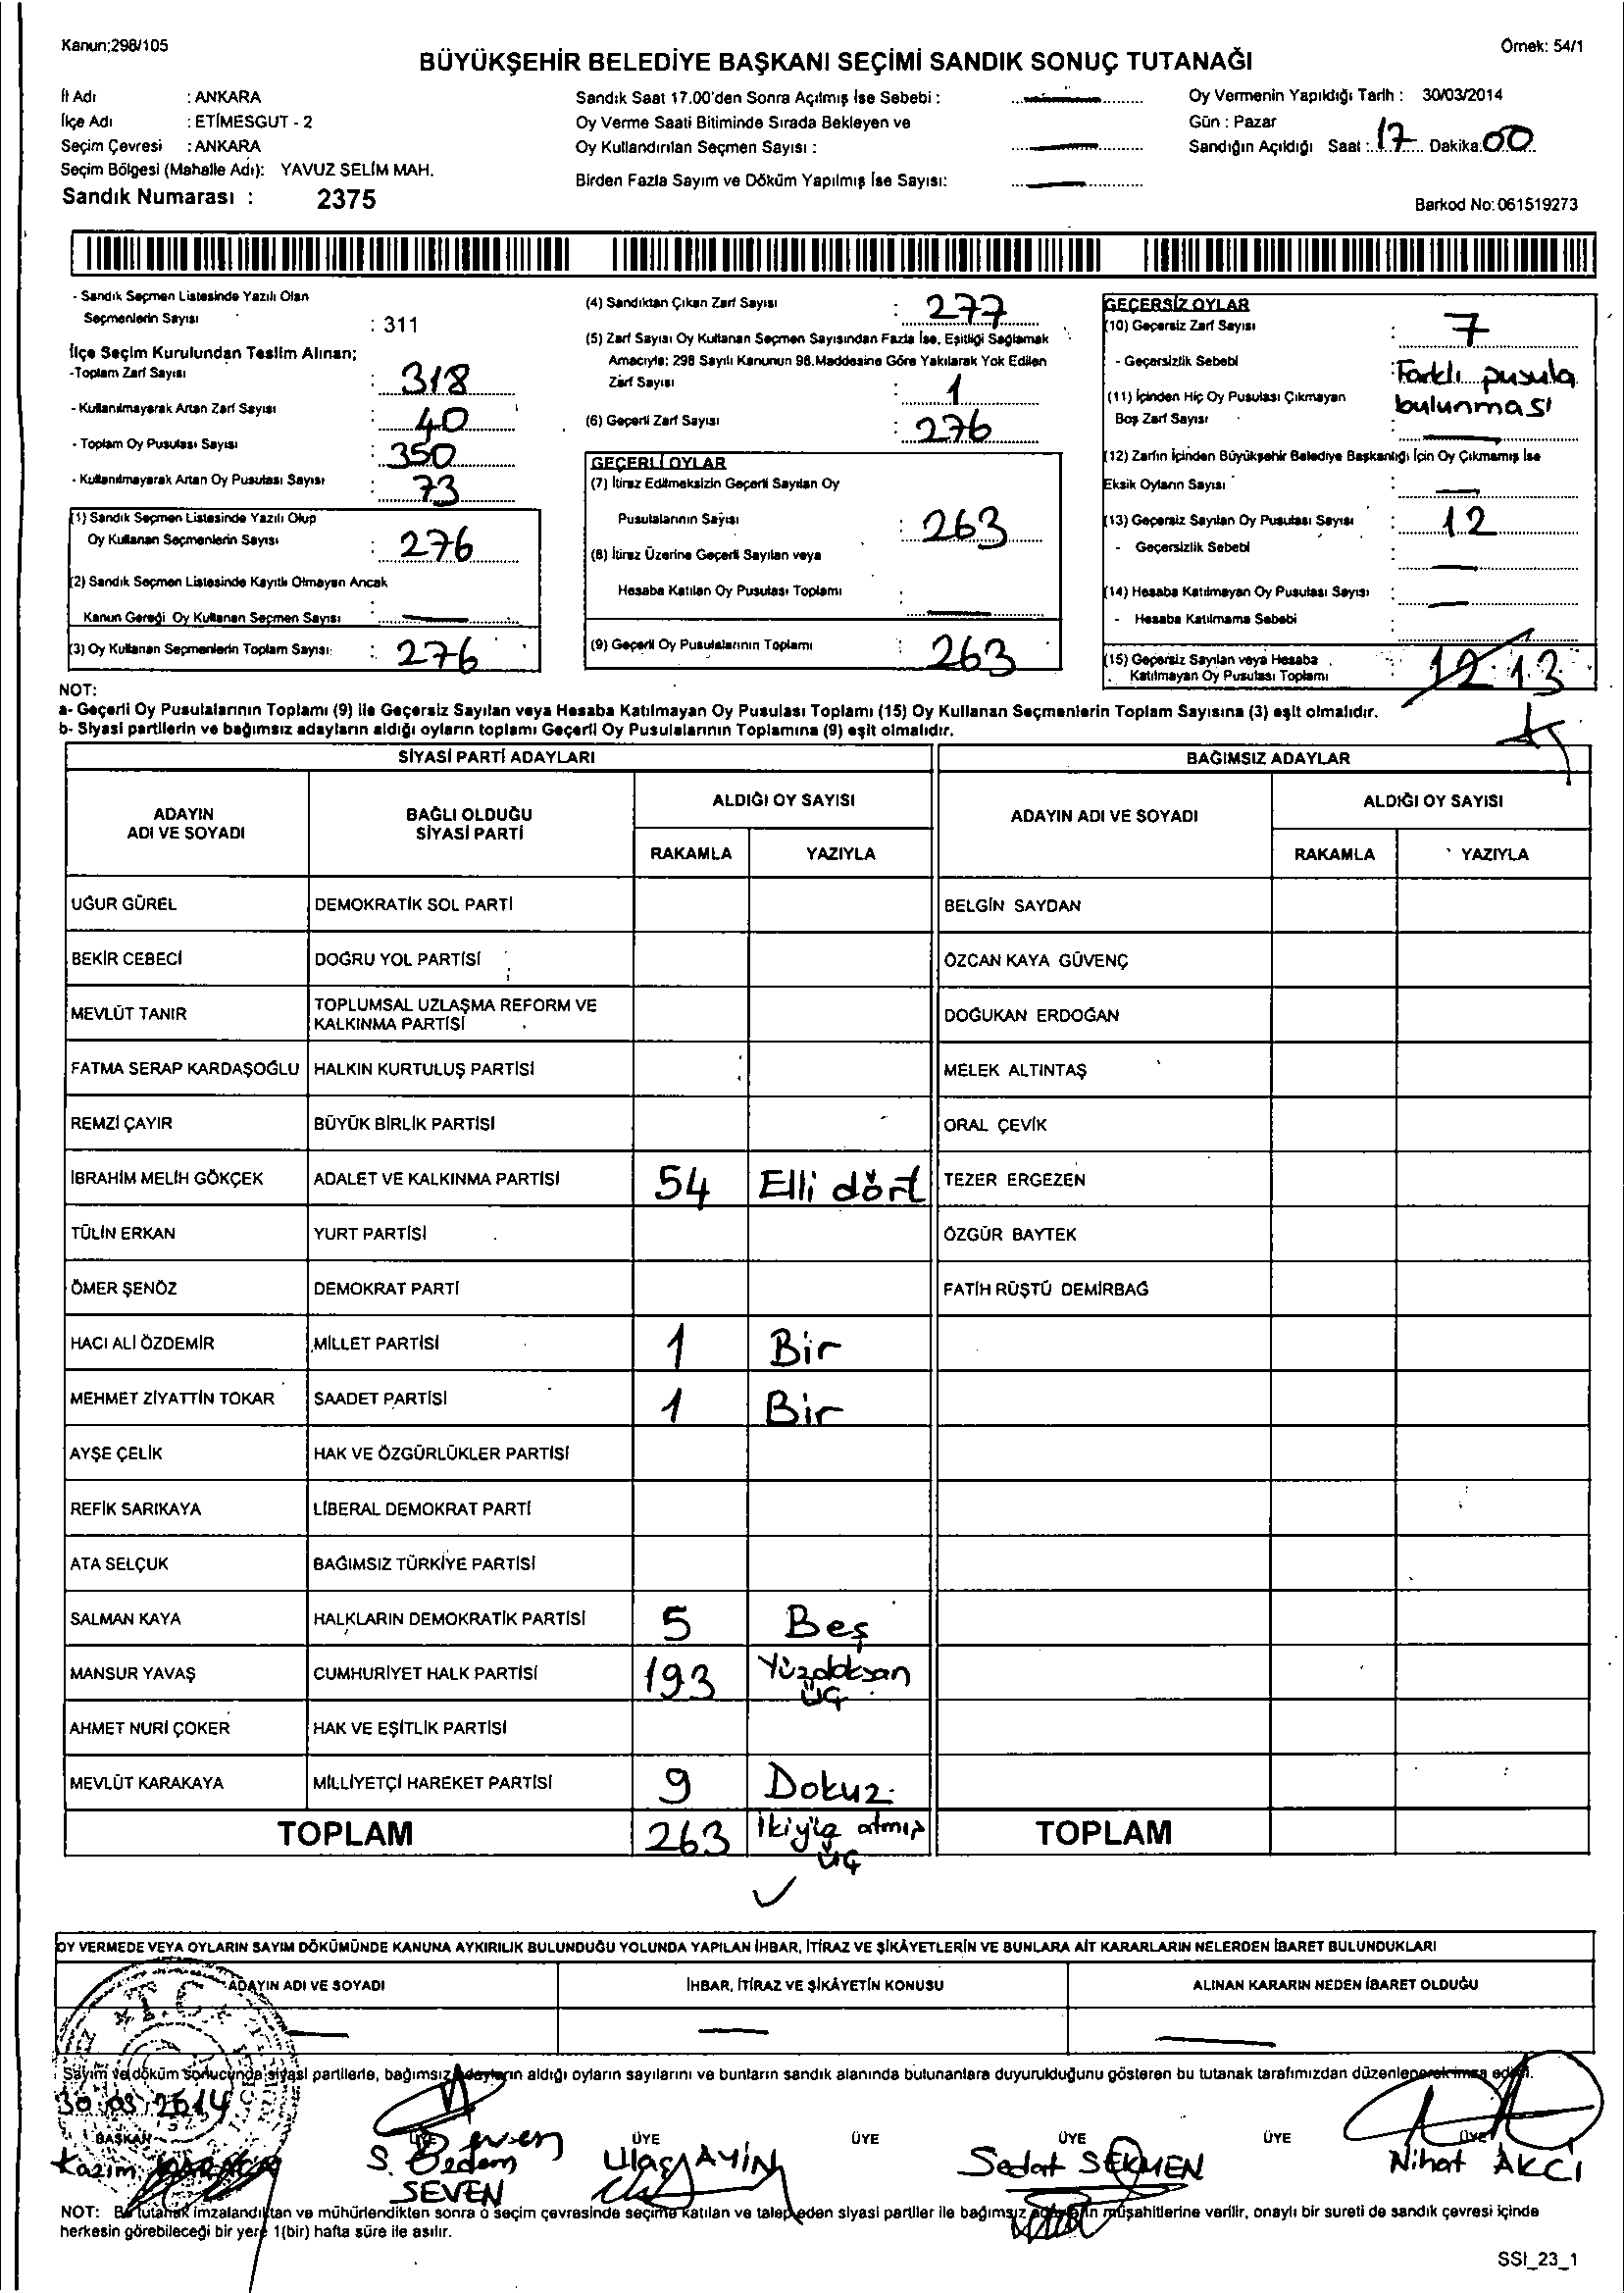 Kanun;298/105
Örnek: 54/1
BÜYÜKŞEHİR BELEDİYE BAŞKANI SEÇİMİ SANDIK SONUÇ TUTANAĞI
İl Adı : ANKARA
İlçe Adı : ETİMESGUT - 2
Seçim Çevresi : ANKARA
Seçim Bölgesi (Mahalle Adı): YAVUZ SELİM MAH.
Sandık Numarası : 2375
Sandık Saat 17.00'den Sonra Açılmış İse Sebebi :
Oy Verme Saati Bitiminde Sırada Bekleyen ve
Oy Kullandırılan Seçmen Sayısı :
Birden Fazla Sayım ve Döküm Yapılmış İse Sayısı:
Oy Vermenin Yapıldığı Tarih : 30/03/2014
Gün : Pazar
Sandığın Açıldığı Saat : 17 Dakika: 00
Barkod No: 061519273
- Sandık Seçmen Listesinde Yazılı Olan
Seçmenlerin Sayısı : 311
İlçe Seçim Kurulundan Teslim Alınan;
-Toplam Zarf Sayısı : 318
- Kullanılmayarak Artan Zarf Sayısı : 40
- Toplam Oy Pusulası Sayısı : 350
- Kullanılmayarak Artan Oy Pusulası Sayısı : 73
(1) Sandık Seçmen Listesinde Yazılı Olup
Oy Kullanan Seçmenlerin Sayısı : 276
(2) Sandık Seçmen Listesinde Kayıtlı Olmayan Ancak
Kanun Gereği Oy Kullanan Seçmen Sayısı :
(3) Oy Kullanan Seçmenlerin Toplam Sayısı: : 276
(4) Sandıktan Çıkan Zarf Sayısı : 277
(5) Zarf Sayısı Oy Kullanan Seçmen Sayısından Fazla İse, Eşitliği Sağlamak
Amacıyla; 298 Sayılı Kanunun 98.Maddesine Göre Yakılarak Yok Edilen
Zarf Sayısı : 1
(6) Geçerli Zarf Sayısı : 276
GEÇERLİ OYLAR
(7) İtiraz Edilmeksizin Geçerli Sayılan Oy
Pusulalarının Sayısı : 263
(8) İtiraz Üzerine Geçerli Sayılan veya
Hesaba Katılan Oy Pusulası Toplamı :
(9) Geçerli Oy Pusulalarının Toplamı : 263
GEÇERSİZ OYLAR
(10) Geçersiz Zarf Sayısı : 7
- Geçersizlik Sebebi : Farklı pusula
bulunması
(11) İçinden Hiç Oy Pusulası Çıkmayan
Boş Zarf Sayısı :
(12) Zarfın İçinden Büyükşehir Belediye Başkanlığı İçin Oy Çıkmamış İse
Eksik Oyların Sayısı :
(13) Geçersiz Sayılan Oy Pusulası Sayısı : 12
- Geçersizlik Sebebi :
(14) Hesaba Katılmayan Oy Pusulası Sayısı :
- Hesaba Katılmama Sebebi :
(15) Geçersiz Sayılan veya Hesaba
Katılmayan Oy Pusulası Toplamı : 12 13
NOT:
a- Geçerli Oy Pusulalarının Toplamı (9) ile Geçersiz Sayılan veya Hesaba Katılmayan Oy Pusulası Toplamı (15) Oy Kullanan Seçmenlerin Toplam Sayısına (3) eşit olmalıdır.
b- Siyasi partilerin ve bağımsız adayların aldığı oyların toplamı Geçerli Oy Pusulalarının Toplamına (9) eşit olmalıdır.
SİYASİ PARTİ ADAYLARI
BAĞIMSIZ ADAYLAR
ADAYIN
ADI VE SOYADI
BAĞLI OLDUĞU
SİYASİ PARTİ
ALDIĞI OY SAYISI
RAKAMLA YAZIYLA
ADAYIN ADI VE SOYADI
ALDIĞI OY SAYISI
RAKAMLA YAZIYLA
UĞUR GÜREL DEMOKRATİK SOL PARTİ BELGİN SAYDAN
BEKİR CEBECİ DOĞRU YOL PARTİSİ ÖZCAN KAYA GÜVENÇ
MEVLÜT TANIR TOPLUMSAL UZLAŞMA REFORM VE
KALKINMA PARTİSİ DOĞUKAN ERDOĞAN
FATMA SERAP KARDAŞOĞLU HALKIN KURTULUŞ PARTİSİ MELEK ALTINTAŞ
REMZİ ÇAYIR BÜYÜK BİRLİK PARTİSİ ORAL ÇEVİK
İBRAHİM MELİH GÖKÇEK ADALET VE KALKINMA PARTİSİ 54 Elli dört TEZER ERGEZEN
TÜLİN ERKAN YURT PARTİSİ ÖZGÜR BAYTEK
ÖMER ŞENÖZ DEMOKRAT PARTİ FATİH RÜŞTÜ DEMİRBAĞ
HACI ALİ ÖZDEMİR MİLLET PARTİSİ 1 Bir
MEHMET ZİYATTİN TOKAR SAADET PARTİSİ 1 Bir
AYŞE ÇELİK HAK VE ÖZGÜRLÜKLER PARTİSİ
REFİK SARIKAYA LİBERAL DEMOKRAT PARTİ
ATA SELÇUK BAĞIMSIZ TÜRKİYE PARTİSİ
SALMAN KAYA HALKLARIN DEMOKRATİK PARTİSİ 5 Beş
MANSUR YAVAŞ CUMHURİYET HALK PARTİSİ 193 Yüzdoksan
üç
AHMET NURİ ÇOKER HAK VE EŞİTLİK PARTİSİ
MEVLÜT KARAKAYA MİLLİYETÇİ HAREKET PARTİSİ 9 Dokuz
TOPLAM 263 İkiyüz atmış
üç
TOPLAM
OY VERMEDE VEYA OYLARIN SAYIM DÖKÜMÜNDE KANUNA AYKIRILIK BULUNDUĞU YOLUNDA YAPILAN İHBAR, İTİRAZ VE ŞİKÂYETLERİN VE BUNLARA AİT KARARLARIN NELERDEN İBARET BULUNDUKLARI
ADAYIN ADI VE SOYADI İHBAR, İTİRAZ VE ŞİKÂYETİN KONUSU ALINAN KARARIN NEDEN İBARET OLDUĞU
T.C.
Sayım ve döküm sonucunda siyasi partilerle, bağımsız adayların aldığı oyların sayılarını ve bunların sandık alanında bulunanlara duyurulduğunu gösteren bu tutanak tarafımızdan düzenlenerek imza edildi.
30.03.2014
BAŞKAN ÜYE ÜYE ÜYE ÜYE ÜYE ÜYE
Kazım S. Özdem SEVEN Ulaş AYİN Sedat SEKMEN Nihat AKCİ
NOT: Bu tutanak imzalandıktan ve mühürlendikten sonra o seçim çevresinde seçime katılan ve talep eden siyasi partiler ile bağımsız adayların müşahitlerine verilir, onaylı bir sureti de sandık çevresi içinde
herkesin görebileceği bir yere 1(bir) hafta süre ile asılır.
SSI_23_1